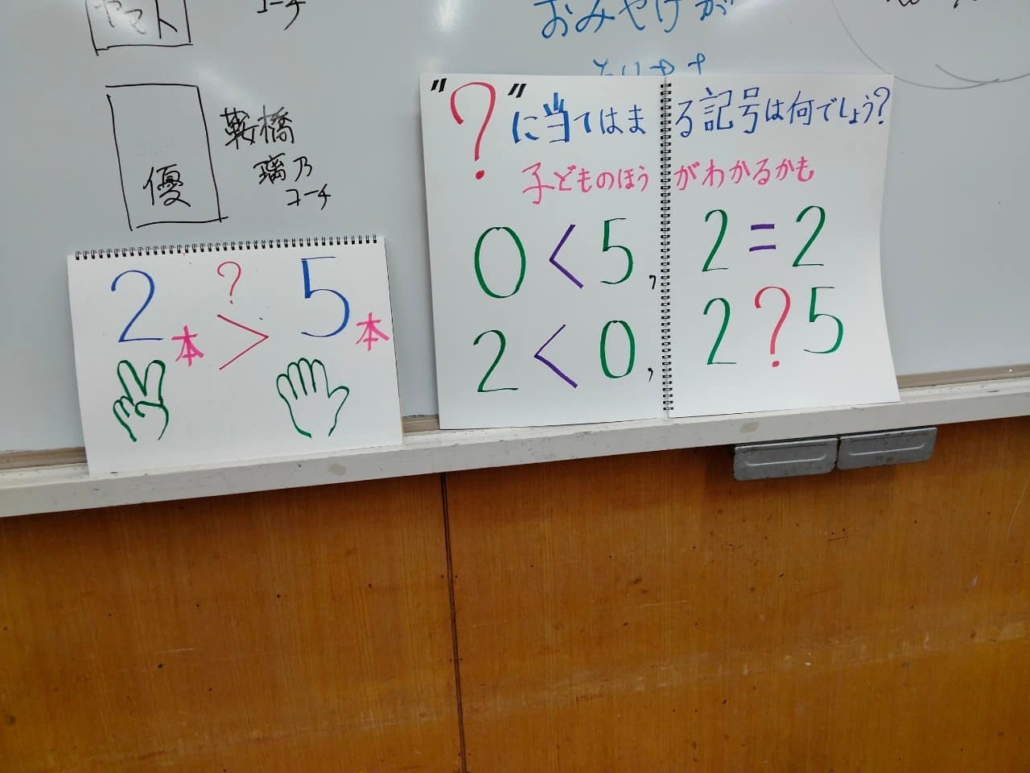 ヤマト
コーチ
おみやげが
優
鞍橋
璃乃
コーチ
"?"に当てはまる記号は何でしょう?
子どものほうがわかるかも
0<5, 2=2
2<0, 2?5
?
2本>5本